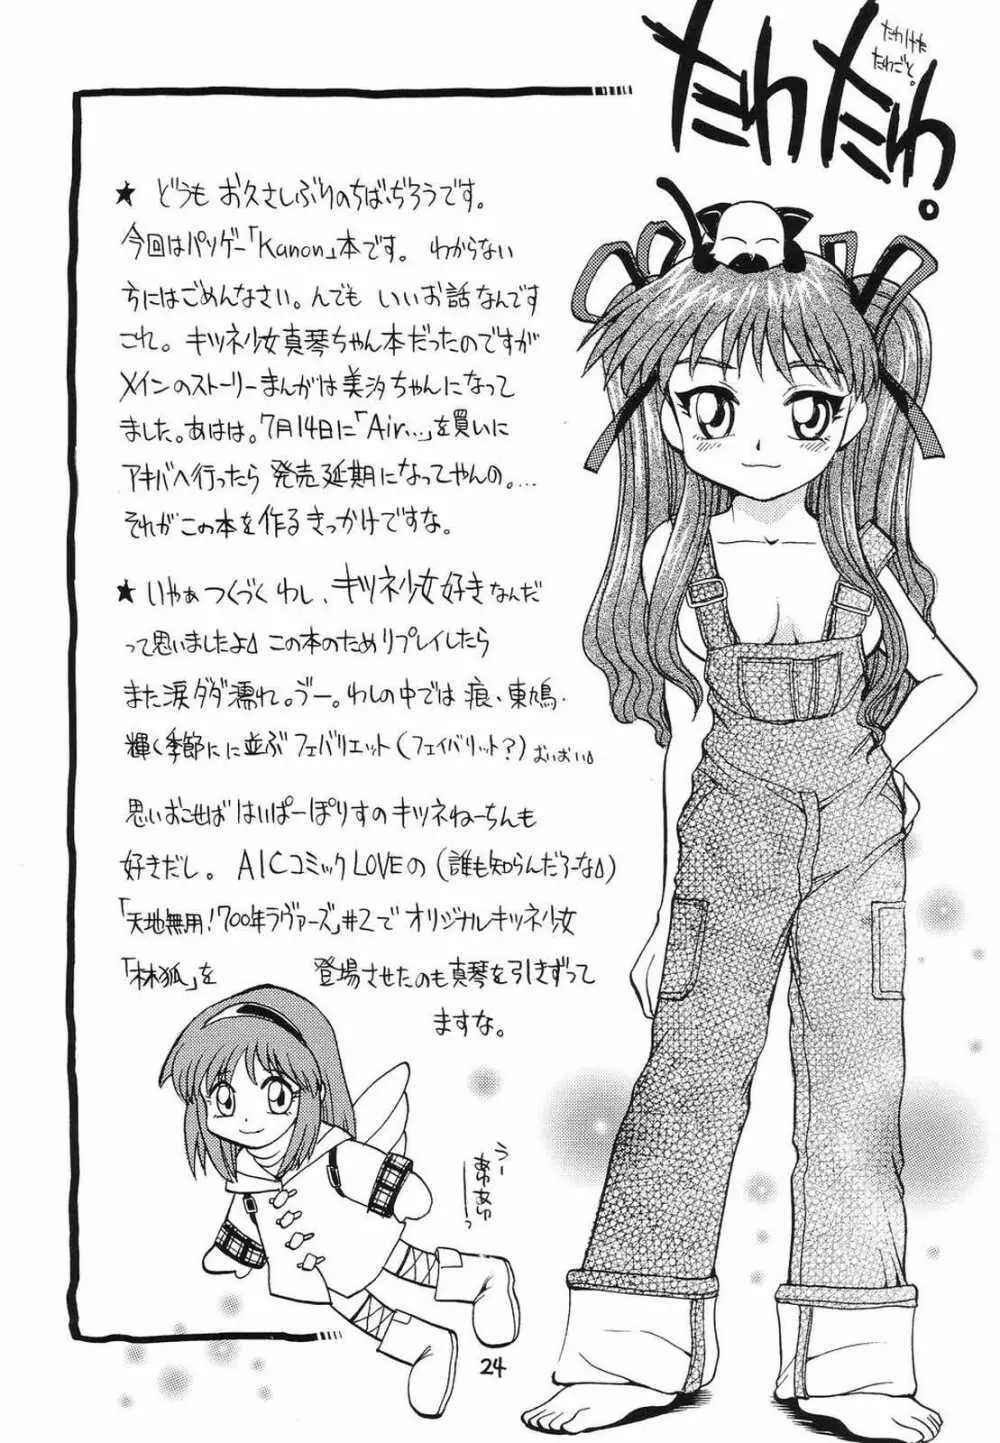 たわけた
たわごと。
たわたわ。
★ どうも お久さしぶりのちばぢろうです。
今回はパソゲー「Kanon」本です。 わからない
方にはごめんなさい。んでも いいお話なんです
これ。 キツネ少女真琴ちゃん本だったのですが
メインのストーリーまんがは美汐ちゃんになって
ました。あはは。7月14日に「Air…」を買いに
アキバへ行ったら 発売延期になってやんの。…
それがこの本を作るきっかけですな。
★ いやぁ つくづく わし、キツネ少女好きなんだ
って思いましたよ この本のためリプレイしたら
また涙ダダ濡れ。ゔー。わしの中では 痕、東鳩、
輝く季節にに並ぶ フェバリエット(フェイバリット?) おいおい
思いおこせば はいぱーぽりすのキツネねーちんも
好きだし。 AICコミックLOVEの(誰も知らんだろーな)
「天地無用!700年ラヴァーズ」#2で オリジナルキツネ少女
「林狐」を 登場させたのも真琴を引きずって
ますな。
うー
あゆあゆ
ーっ
24